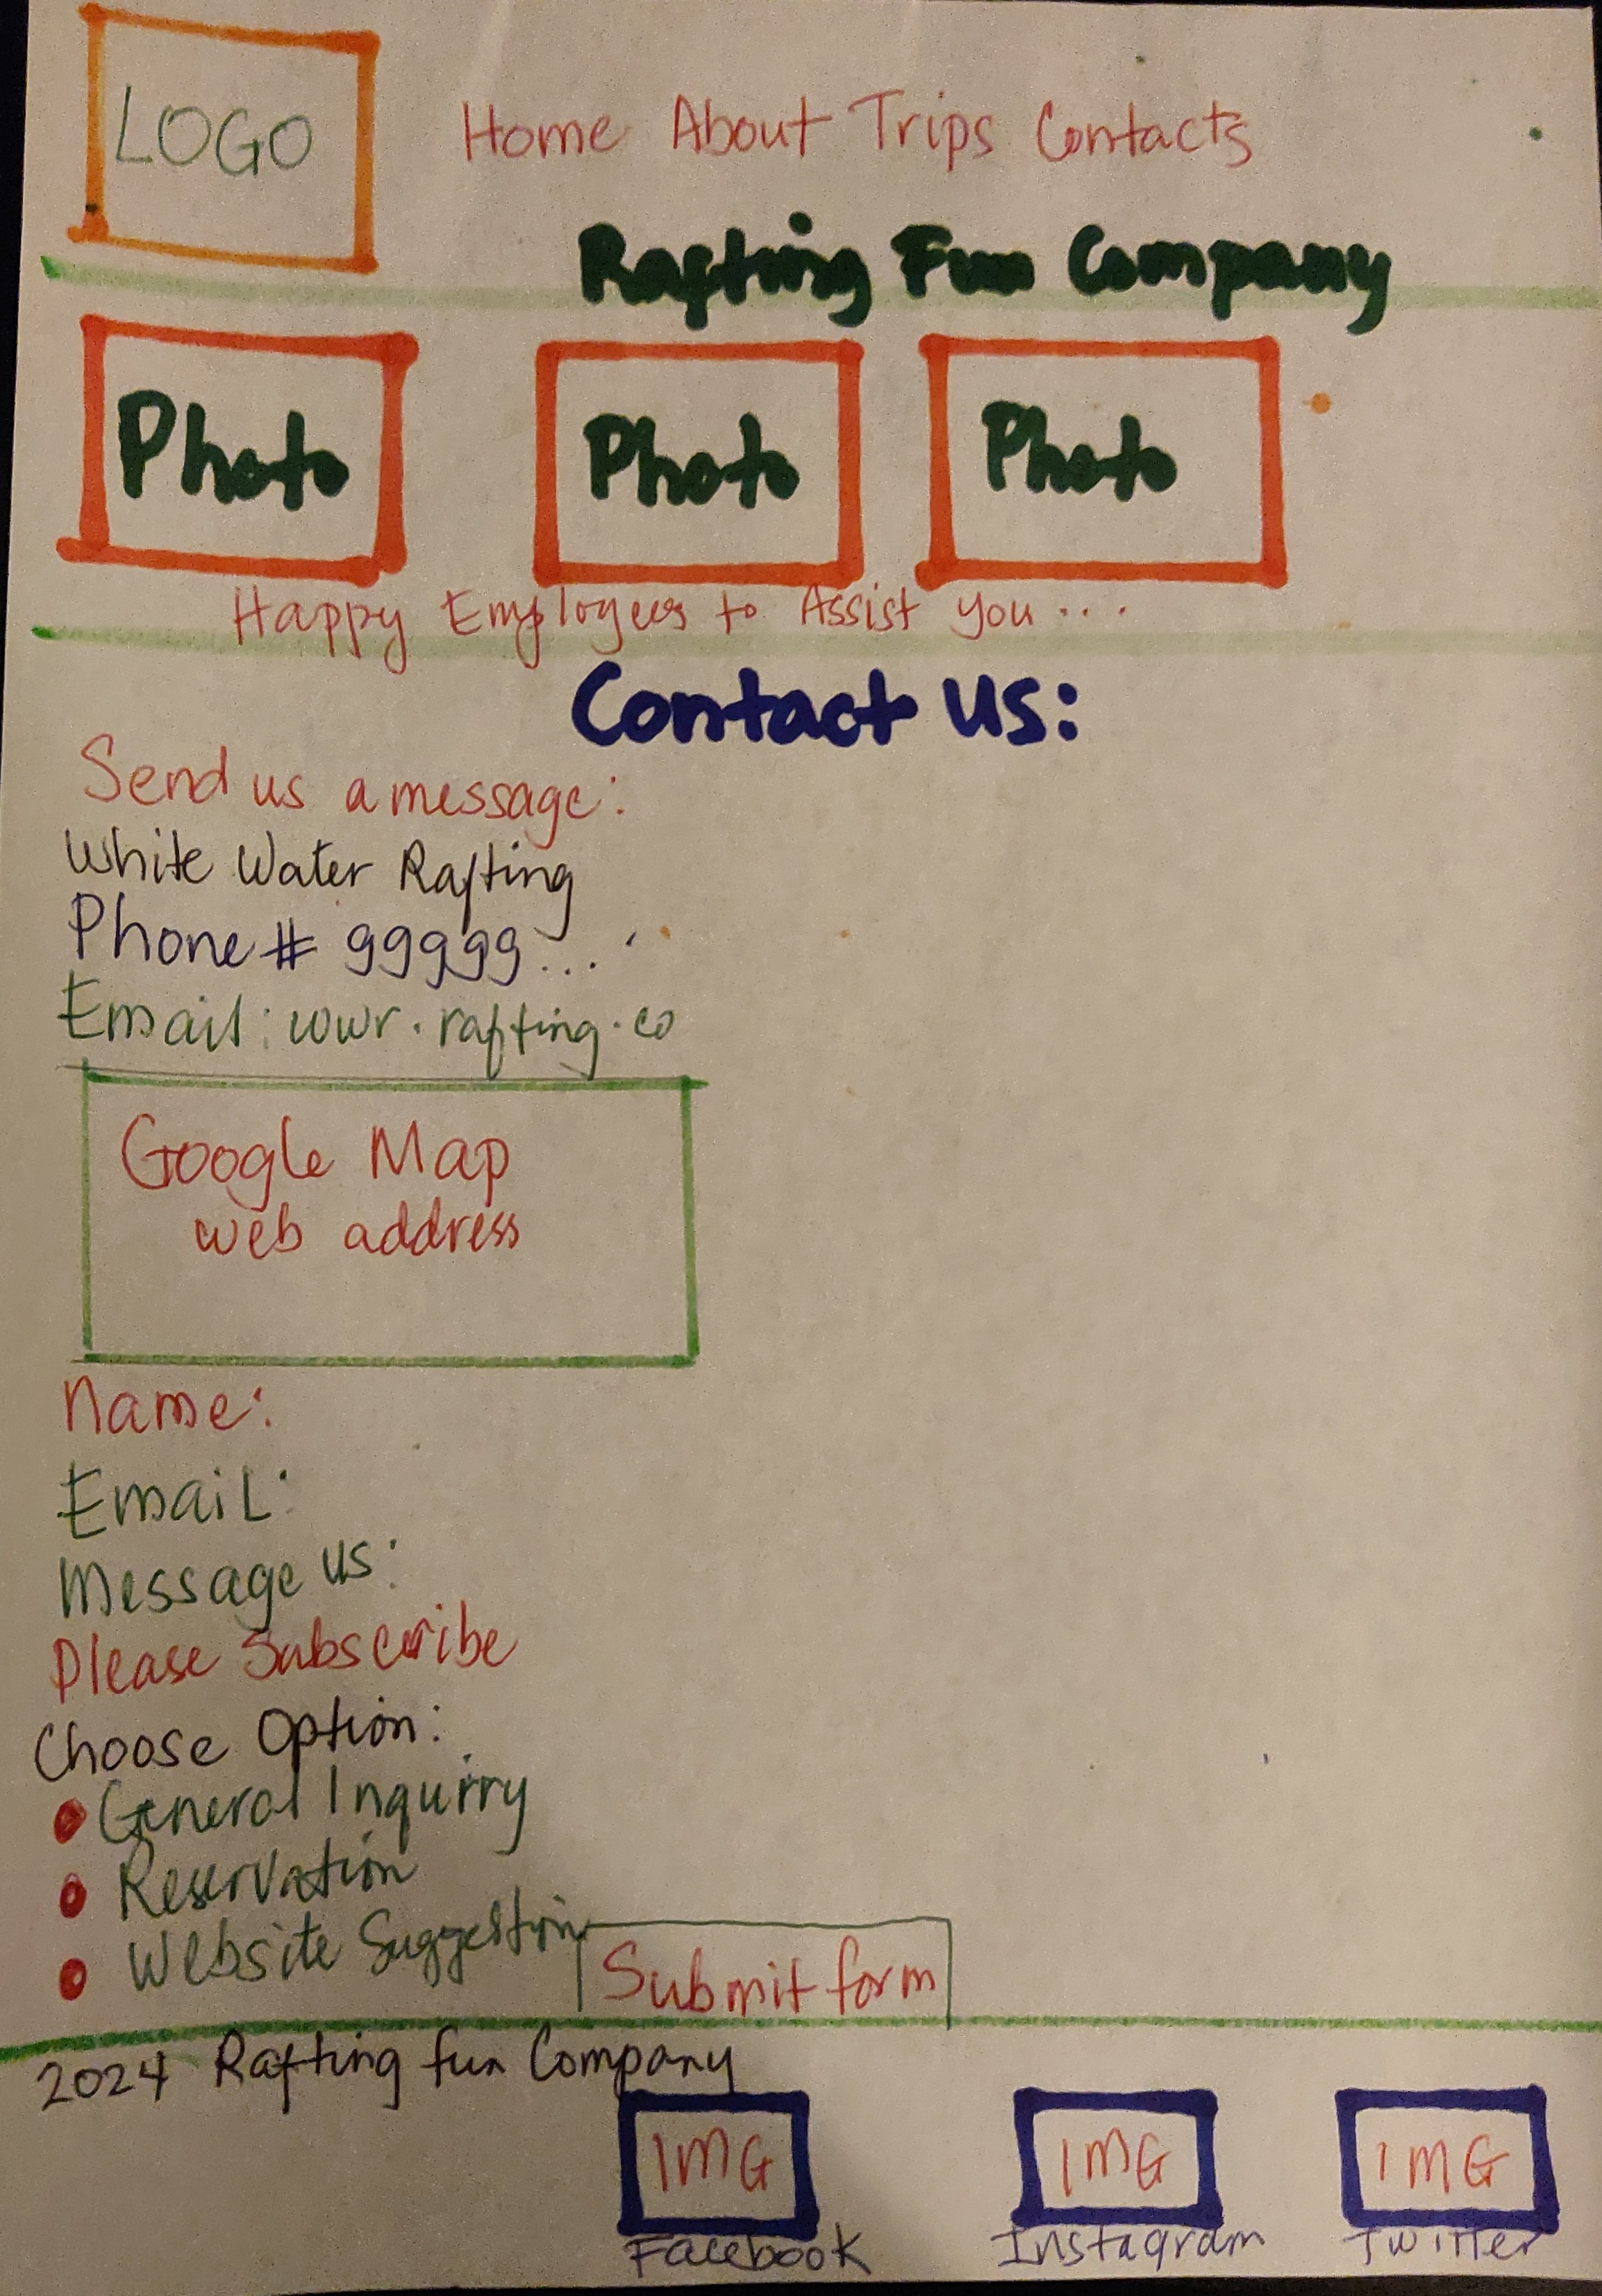 LOGO
Home About Trips Contacts
Rafting Fun Company
Photo Photo Photo
Happy Employees to Assist you...
Contact us:
Send us a message:
White Water Rafting
Phone # 99999...
Email: wwr.rafting.co
Google Map
web address
Name:
Email:
Message us:
Please Subscribe
Choose Option:
General Inquirry
Reservation
Website Suggestion
Submit form
2024 Rafting fun Company
IMG IMG IMG
Facebook Instagram Twitter